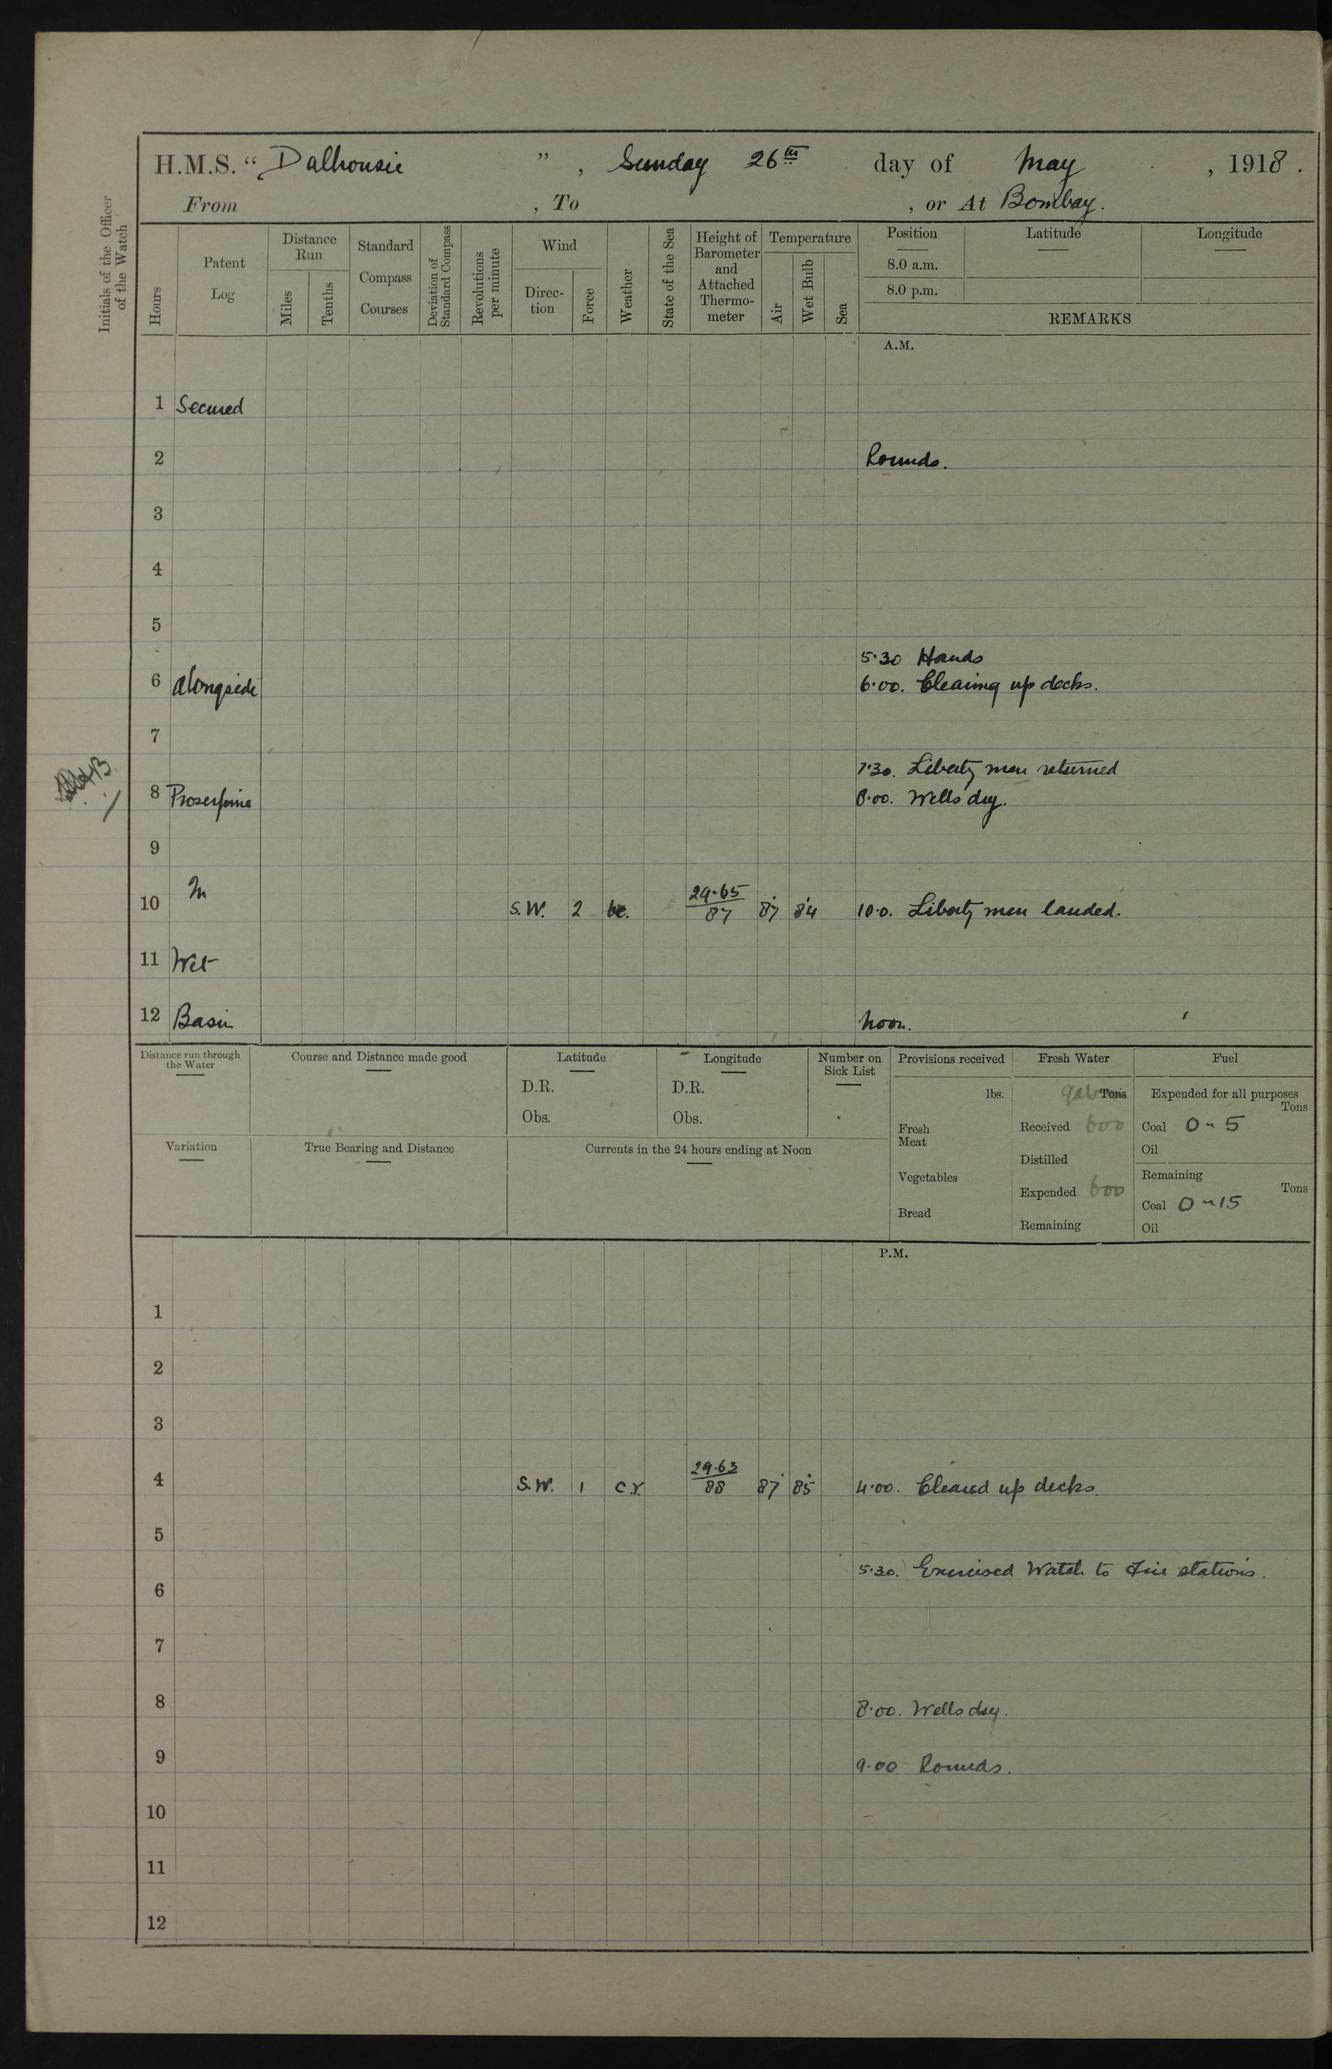 H.M.S. "Dalhousie", Sunday 26th day of May, 1918.
From , To , or At Bombay.
Initials of the Officer of the Watch
Hours
Patent Log
Distance Run
Miles
Tenths
Standard Compass Courses
Deviation of Standard Compass
Revolutions per minute
Wind
Direction
Force
Weather
State of the Sea
Height of Barometer and Attached Thermometer
Temperature
Air
Wet Bulb
Sea
Position Latitude Longitude
8.0 a.m.
8.0 p.m.
REMARKS
A.M.
1 Secured
2 Rounds.
3
4
5
5.30 Hands
6 alongside 6.00. Clearing up decks.
7
7.30. Liberty men returned
8 Proserpine 8.00. Wells dry.
9
10 In S.W. 2 bc. 29.65/87 87 84 10.0. Liberty men landed.
11 Wet
12 Basin Noon.
Distance run through the Water
Course and Distance made good
Latitude
D.R.
Obs.
Longitude
D.R.
Obs.
Number on Sick List
Provisions received
lbs.
Fresh Meat
Vegetables
Bread
Fresh Water
Tons
Received 600
Distilled
Expended 600
Remaining
Fuel
Expended for all purposes
Tons
Coal 0 - 5
Oil
Remaining
Tons
Coal 0 - 15
Oil
Variation
True Bearing and Distance
Currents in the 24 hours ending at Noon
P.M.
1
2
3
4 S.W. 1 29.63/88 87 85 4.00. Cleared up decks.
5
5.30. Exercised Watch to Fire stations.
6
7
8 8.00. Wells dry.
9 9.00 Rounds.
10
11
12